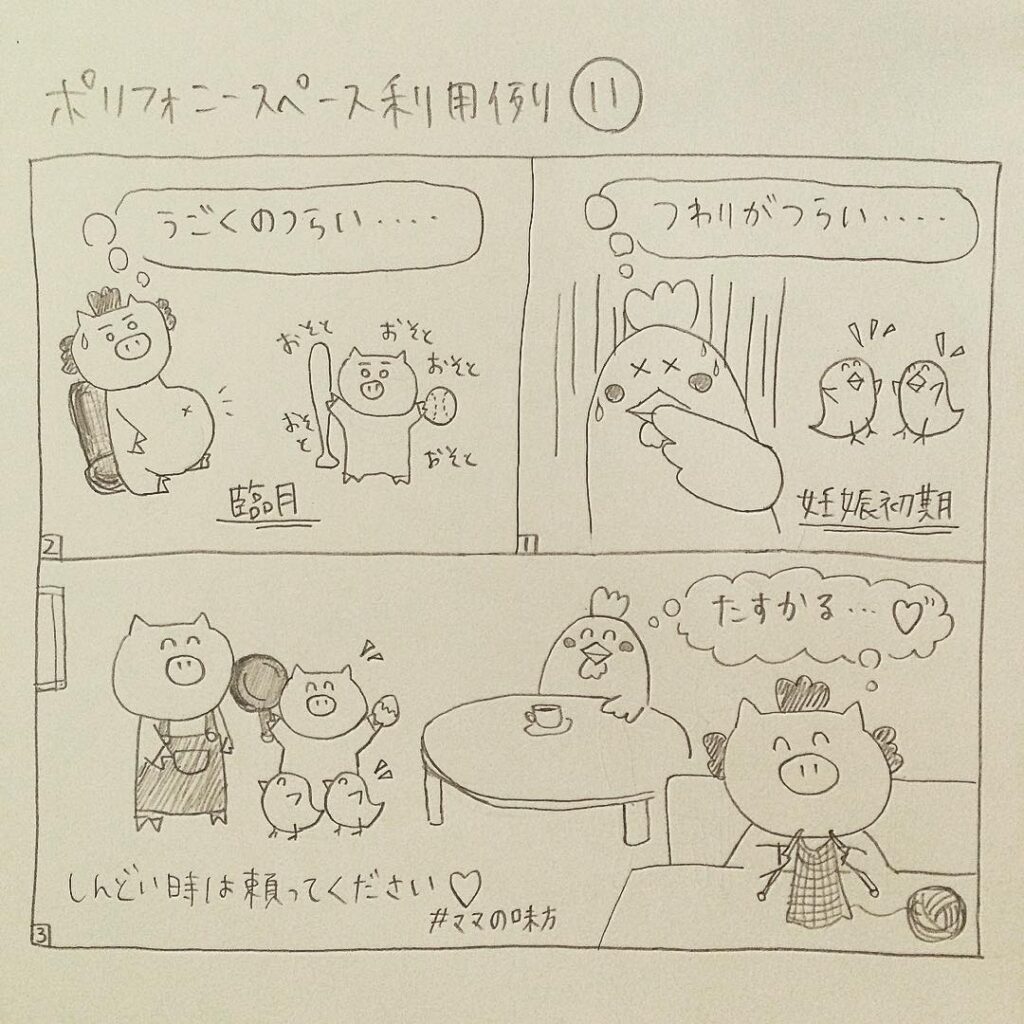 ポリフォニースペース利用例⑪
つわりがつらい・・・・・
妊娠初期
1
うごくのつらい・・・・
おそと
おそと
おそと
おそと
おそと
臨月
2
たすかる・・・♡
しんどい時は頼ってください♡
#ママの味方
3